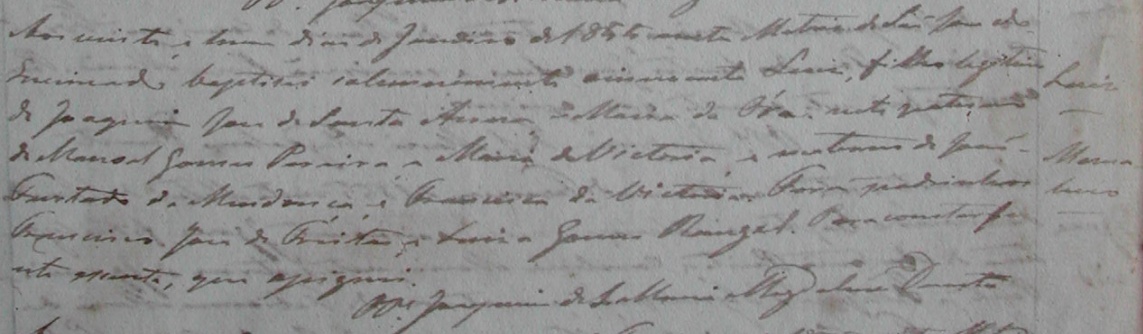 Aos vinte e hum dias de Janeiro de 1866 nesta Matriz de São Jose do
baptisei solemnemente innocente Luis, filho legitimo
de Joaquim Jose de Santa Anna, e Maria da neto paterno
de Manoel Gomes Pereira, e Maria da Victoria, e materno de José
Furtado de Mendonça, e Francisca da Victoria. Forão padrinhos
Francisco Jose de Freitas, e Luisa Gomes Rangel. Para constar fiz
este assento, que assignei.
Joaquim de S. Maria Magdalena Duarte
Luis